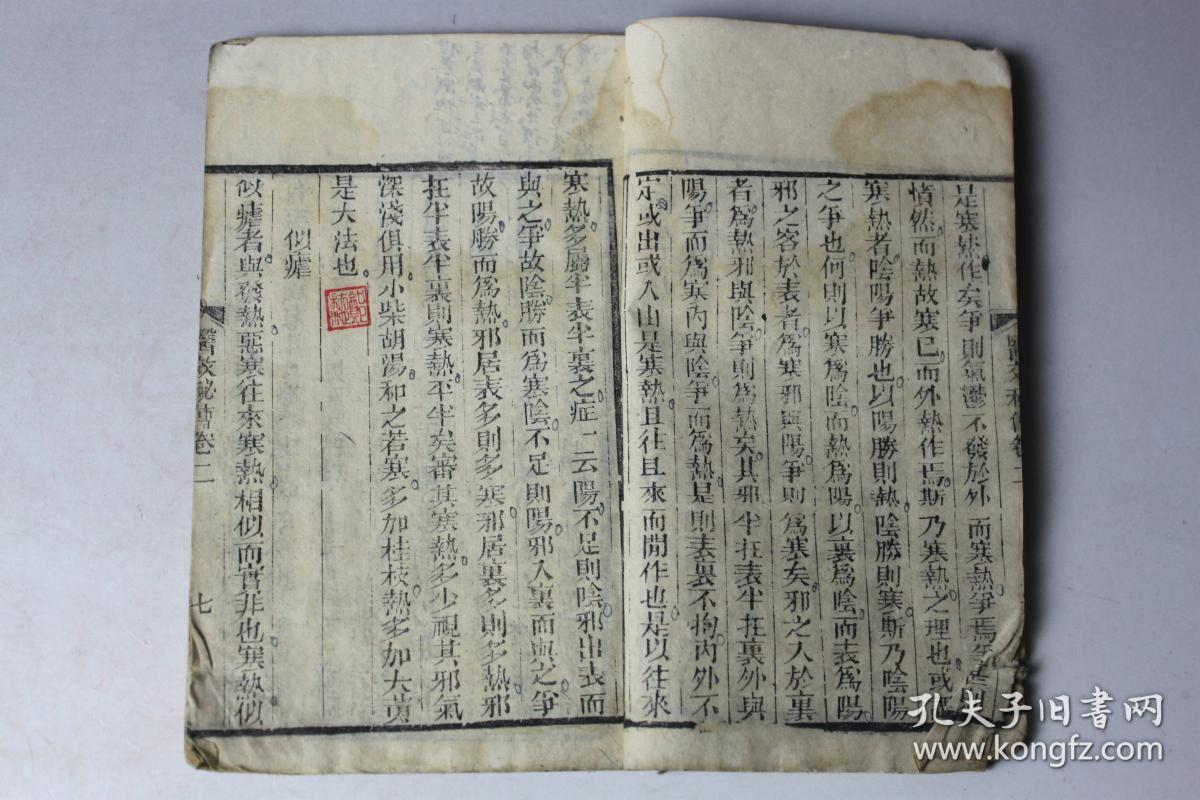 是寒熱作矣爭則氣鬱不發於外而寒熱爭焉爭甚則
憤然而熱故寒已而外熱作焉斯乃寒熱之理也或
寒熱者陰陽爭勝也以陽勝則熱陰勝則寒斯乃陰陽
之爭也何則以寒為陰而熱為陽以裏為陰而表為陽
邪之客於表者為寒邪與陽爭則為寒矣邪之入於裏
者為熱邪與陰爭則為熱矣其邪半在表半在裏外與
陽爭而為寒內與陰爭而為熱是則表裏不拘內外不
定或出或入由是寒熱且往且來而間作也是以往來
寒熱多屬半表半裏之症一云陽不足則陰邪出表而
與之爭故陰勝而為寒陰不足則陽邪入裏而與之爭
故陽勝而為熱邪居表多則多寒邪居裏多則多熱邪
在半表半裏則寒熱平半矣審其寒熱多少視其邪氣
深淺俱用小柴胡湯和之若寒多加桂枝熱多加大黃
是大法也
似瘧
似瘧者與發熱惡寒往來寒熱相似而實非也寒熱似
卷二
七
孔夫子旧书网
www.kongfz.com